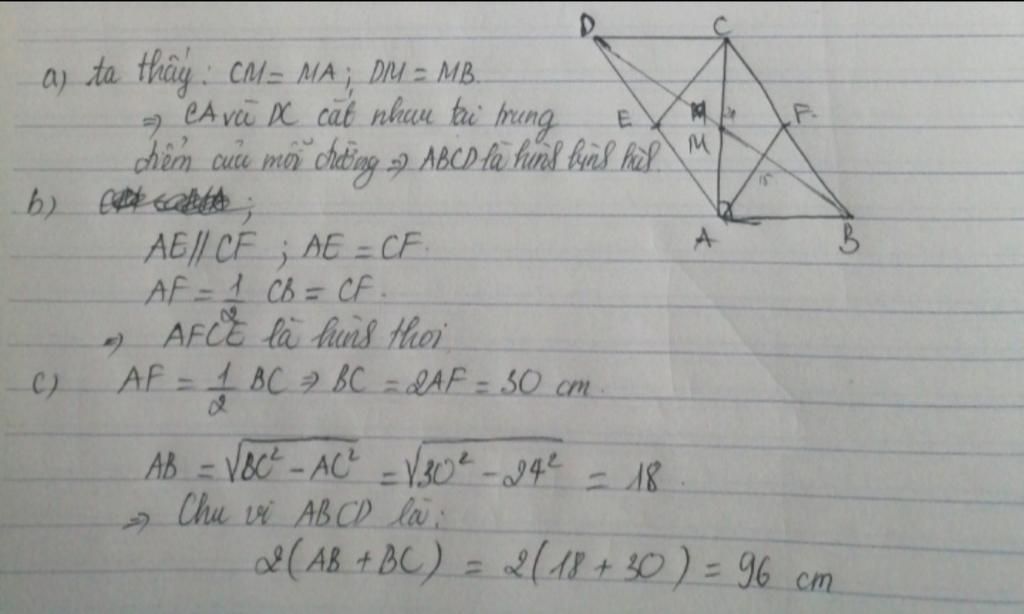 a) ta thấy: CM = MA ; DM = MB.
⇒ CA và DC cắt nhau tại trung
điểm của mỗi đường ⇒ ABCD là hình bình hành.
b) ;
AE // CF ; AE = CF.
AF = 1/2 CB = CF.
⇒ AFCE là hình thoi
c) AF = 1/2 BC ⇒ BC = 2AF = 30 cm.
AB = √BC² - AC² = √30² - 24² = 18.
⇒ Chu vi ABCD là:
2(AB + BC) = 2(18 + 30) = 96 cm
D C
E M 24 F
15
A B